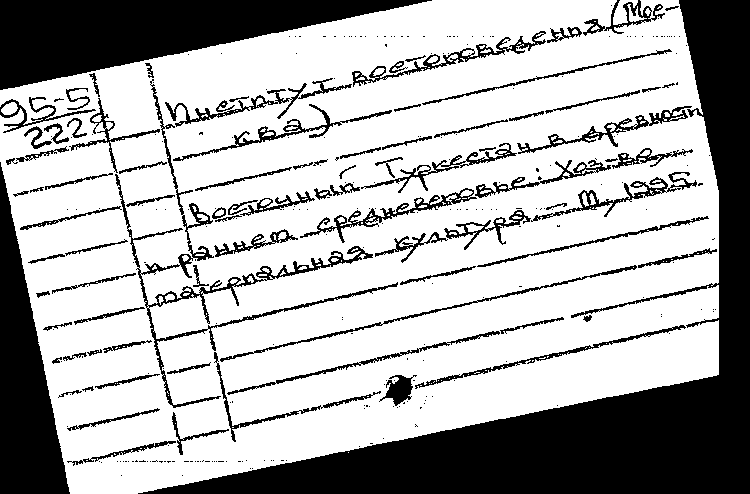 95-5
2228
Институт востоковедения (Мос-
ква)
Восточный Туркестан в древности
и раннем средневековье: Хоз-во,
материальная культура. - М, 1995.